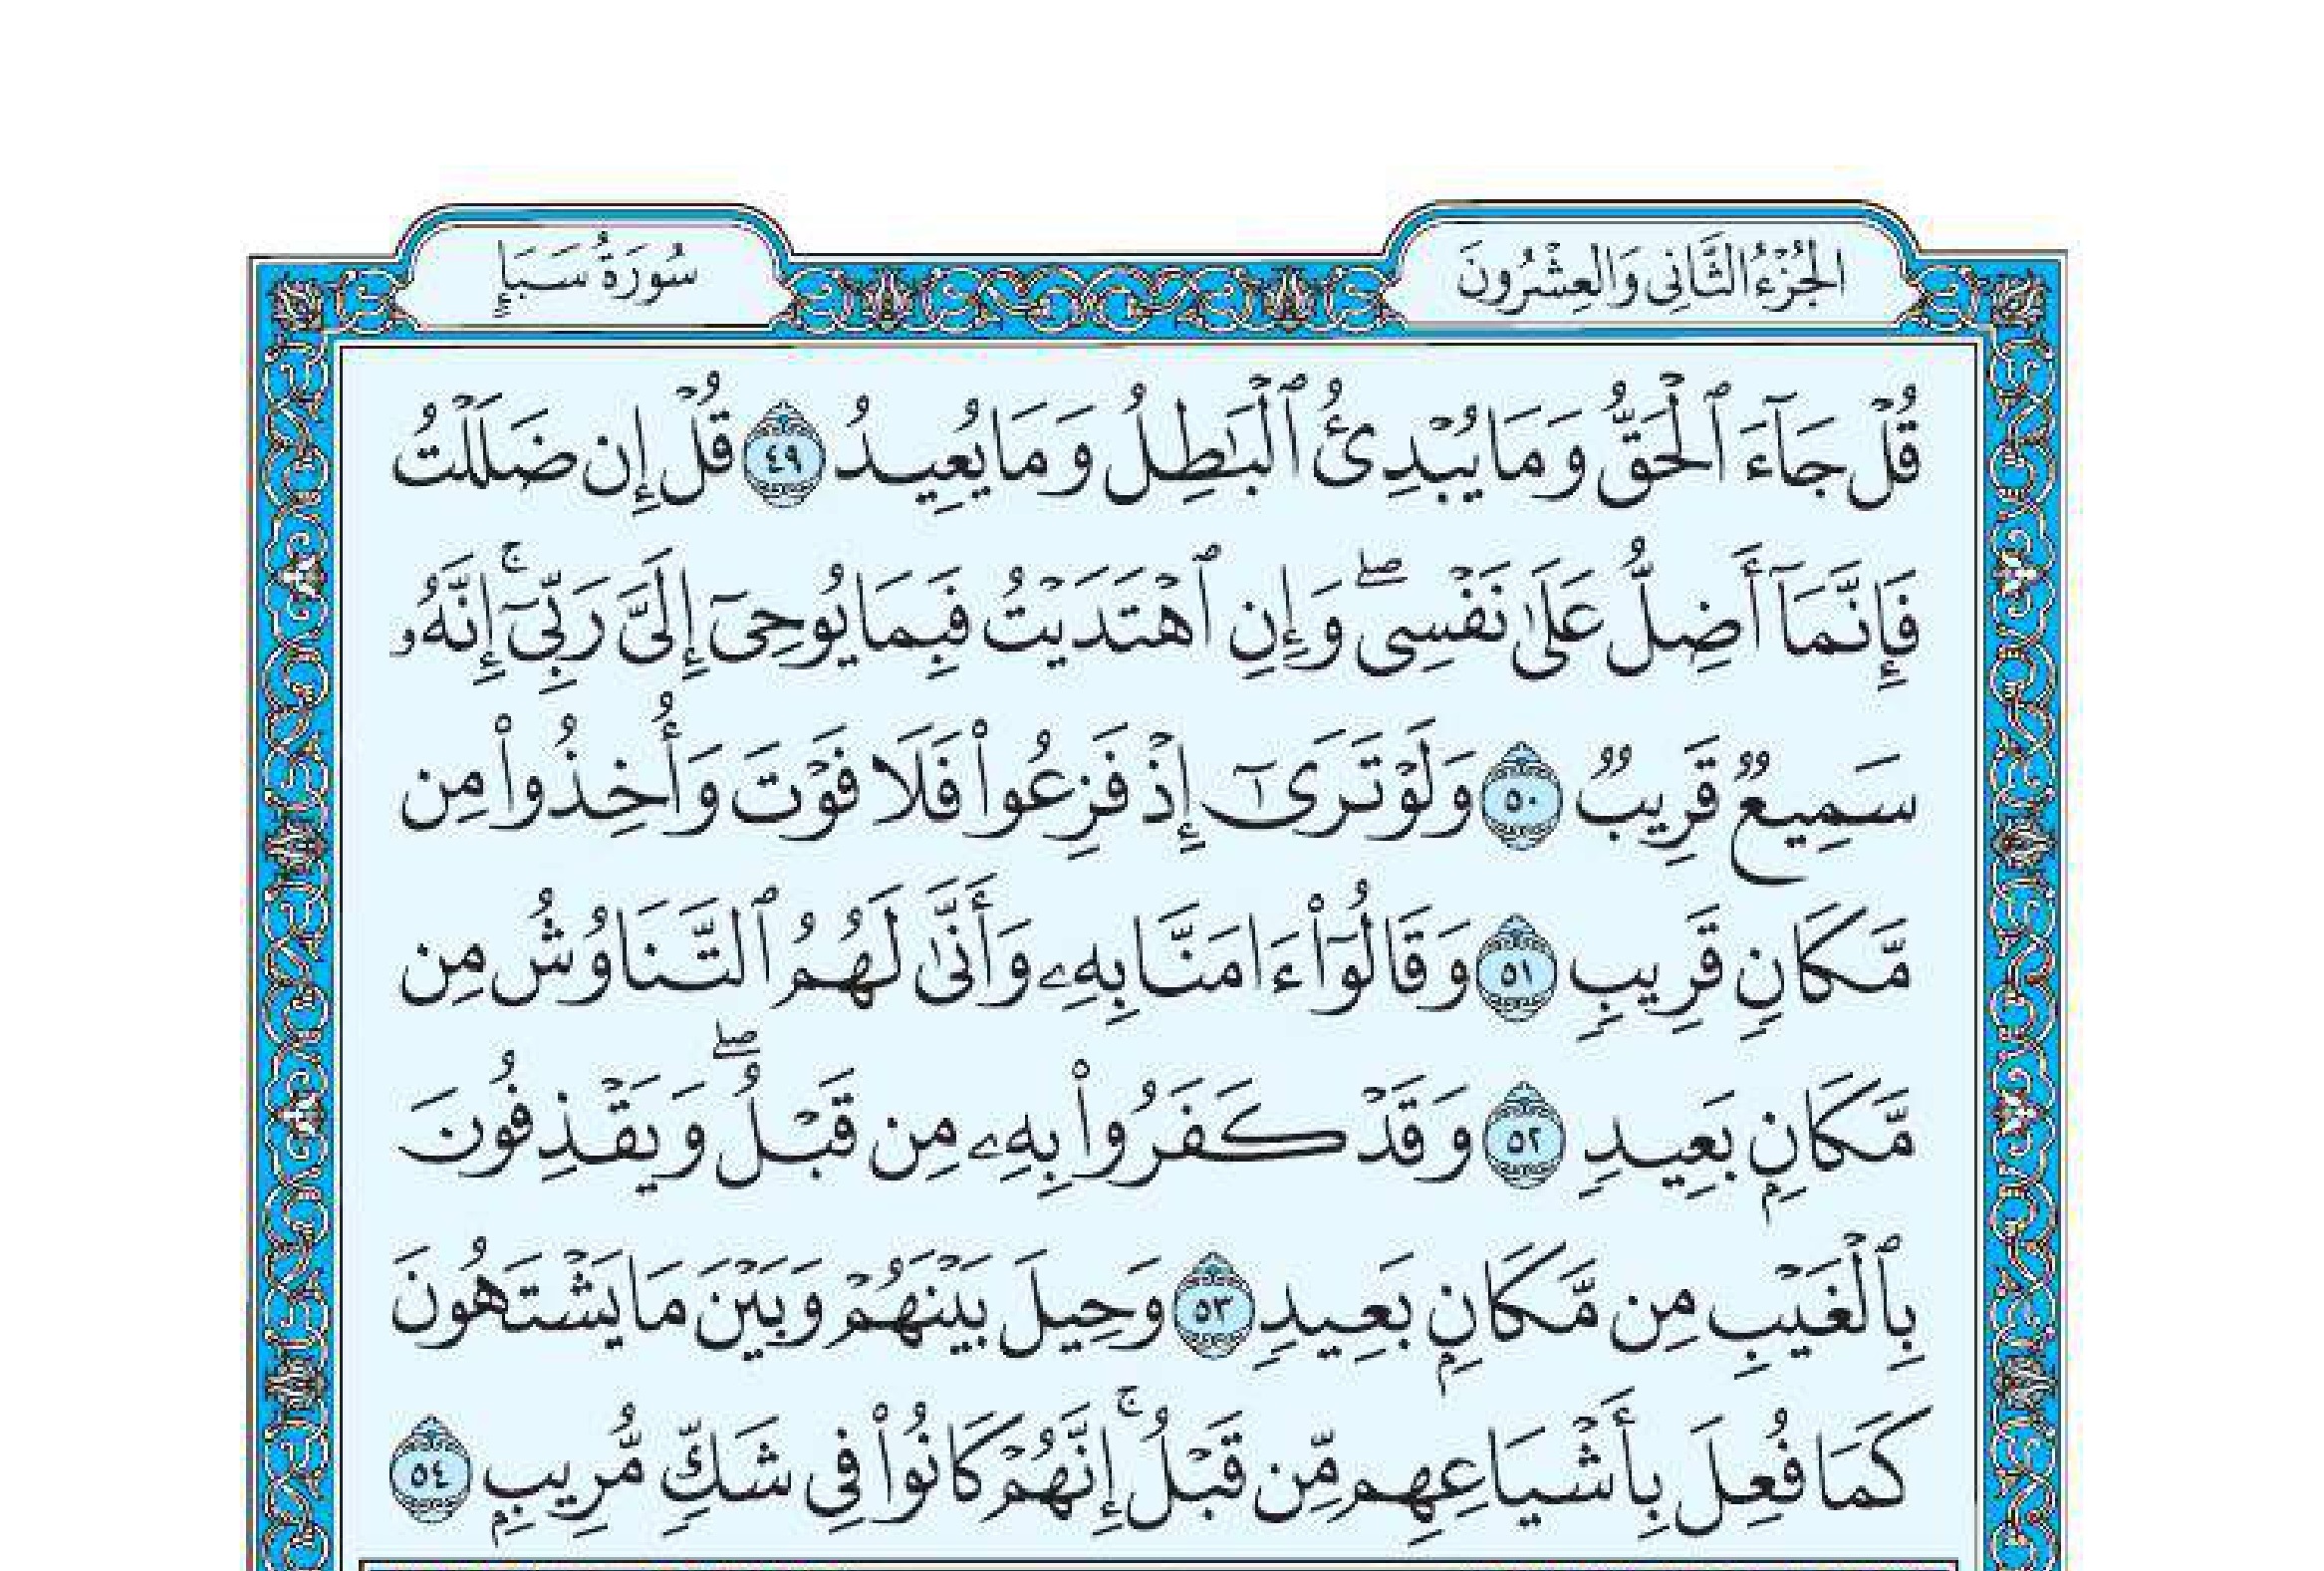 الجُزْءُ الثَّانِي وَالعِشْرُونَ
سُورَةُ سَبَإٍ
قُلْ جَآءَ ٱلْحَقُّ وَمَا يُبْدِئُ ٱلْبَٰطِلُ وَمَا يُعِيدُ ٤٩ قُلْ إِن ضَلَلْتُ
فَإِنَّمَآ أَضِلُّ عَلَىٰ نَفْسِى ۖ وَإِنِ ٱهْتَدَيْتُ فَبِمَا يُوحِىٓ إِلَىَّ رَبِّىٓ ۚ إِنَّهُۥ
سَمِيعٌ قَرِيبٌ ٥٠ وَلَوْ تَرَىٰٓ إِذْ فَزِعُوا۟ فَلَا فَوْتَ وَأُخِذُوا۟ مِن
مَّكَانٍ قَرِيبٍ ٥١ وَقَالُوٓا۟ ءَامَنَّا بِهِۦ وَأَنَّىٰ لَهُمُ ٱلتَّنَاوُشُ مِن
مَّكَانٍۭ بَعِيدٍ ٥٢ وَقَدْ كَفَرُوا۟ بِهِۦ مِن قَبْلُ ۖ وَيَقْذِفُونَ
بِٱلْغَيْبِ مِن مَّكَانٍۭ بَعِيدٍ ٥٣ وَحِيلَ بَيْنَهُمْ وَبَيْنَ مَا يَشْتَهُونَ
كَمَا فُعِلَ بِأَشْيَاعِهِم مِّن قَبْلُ ۚ إِنَّهُمْ كَانُوا۟ فِى شَكٍّ مُّرِيبٍۭ ٥٤